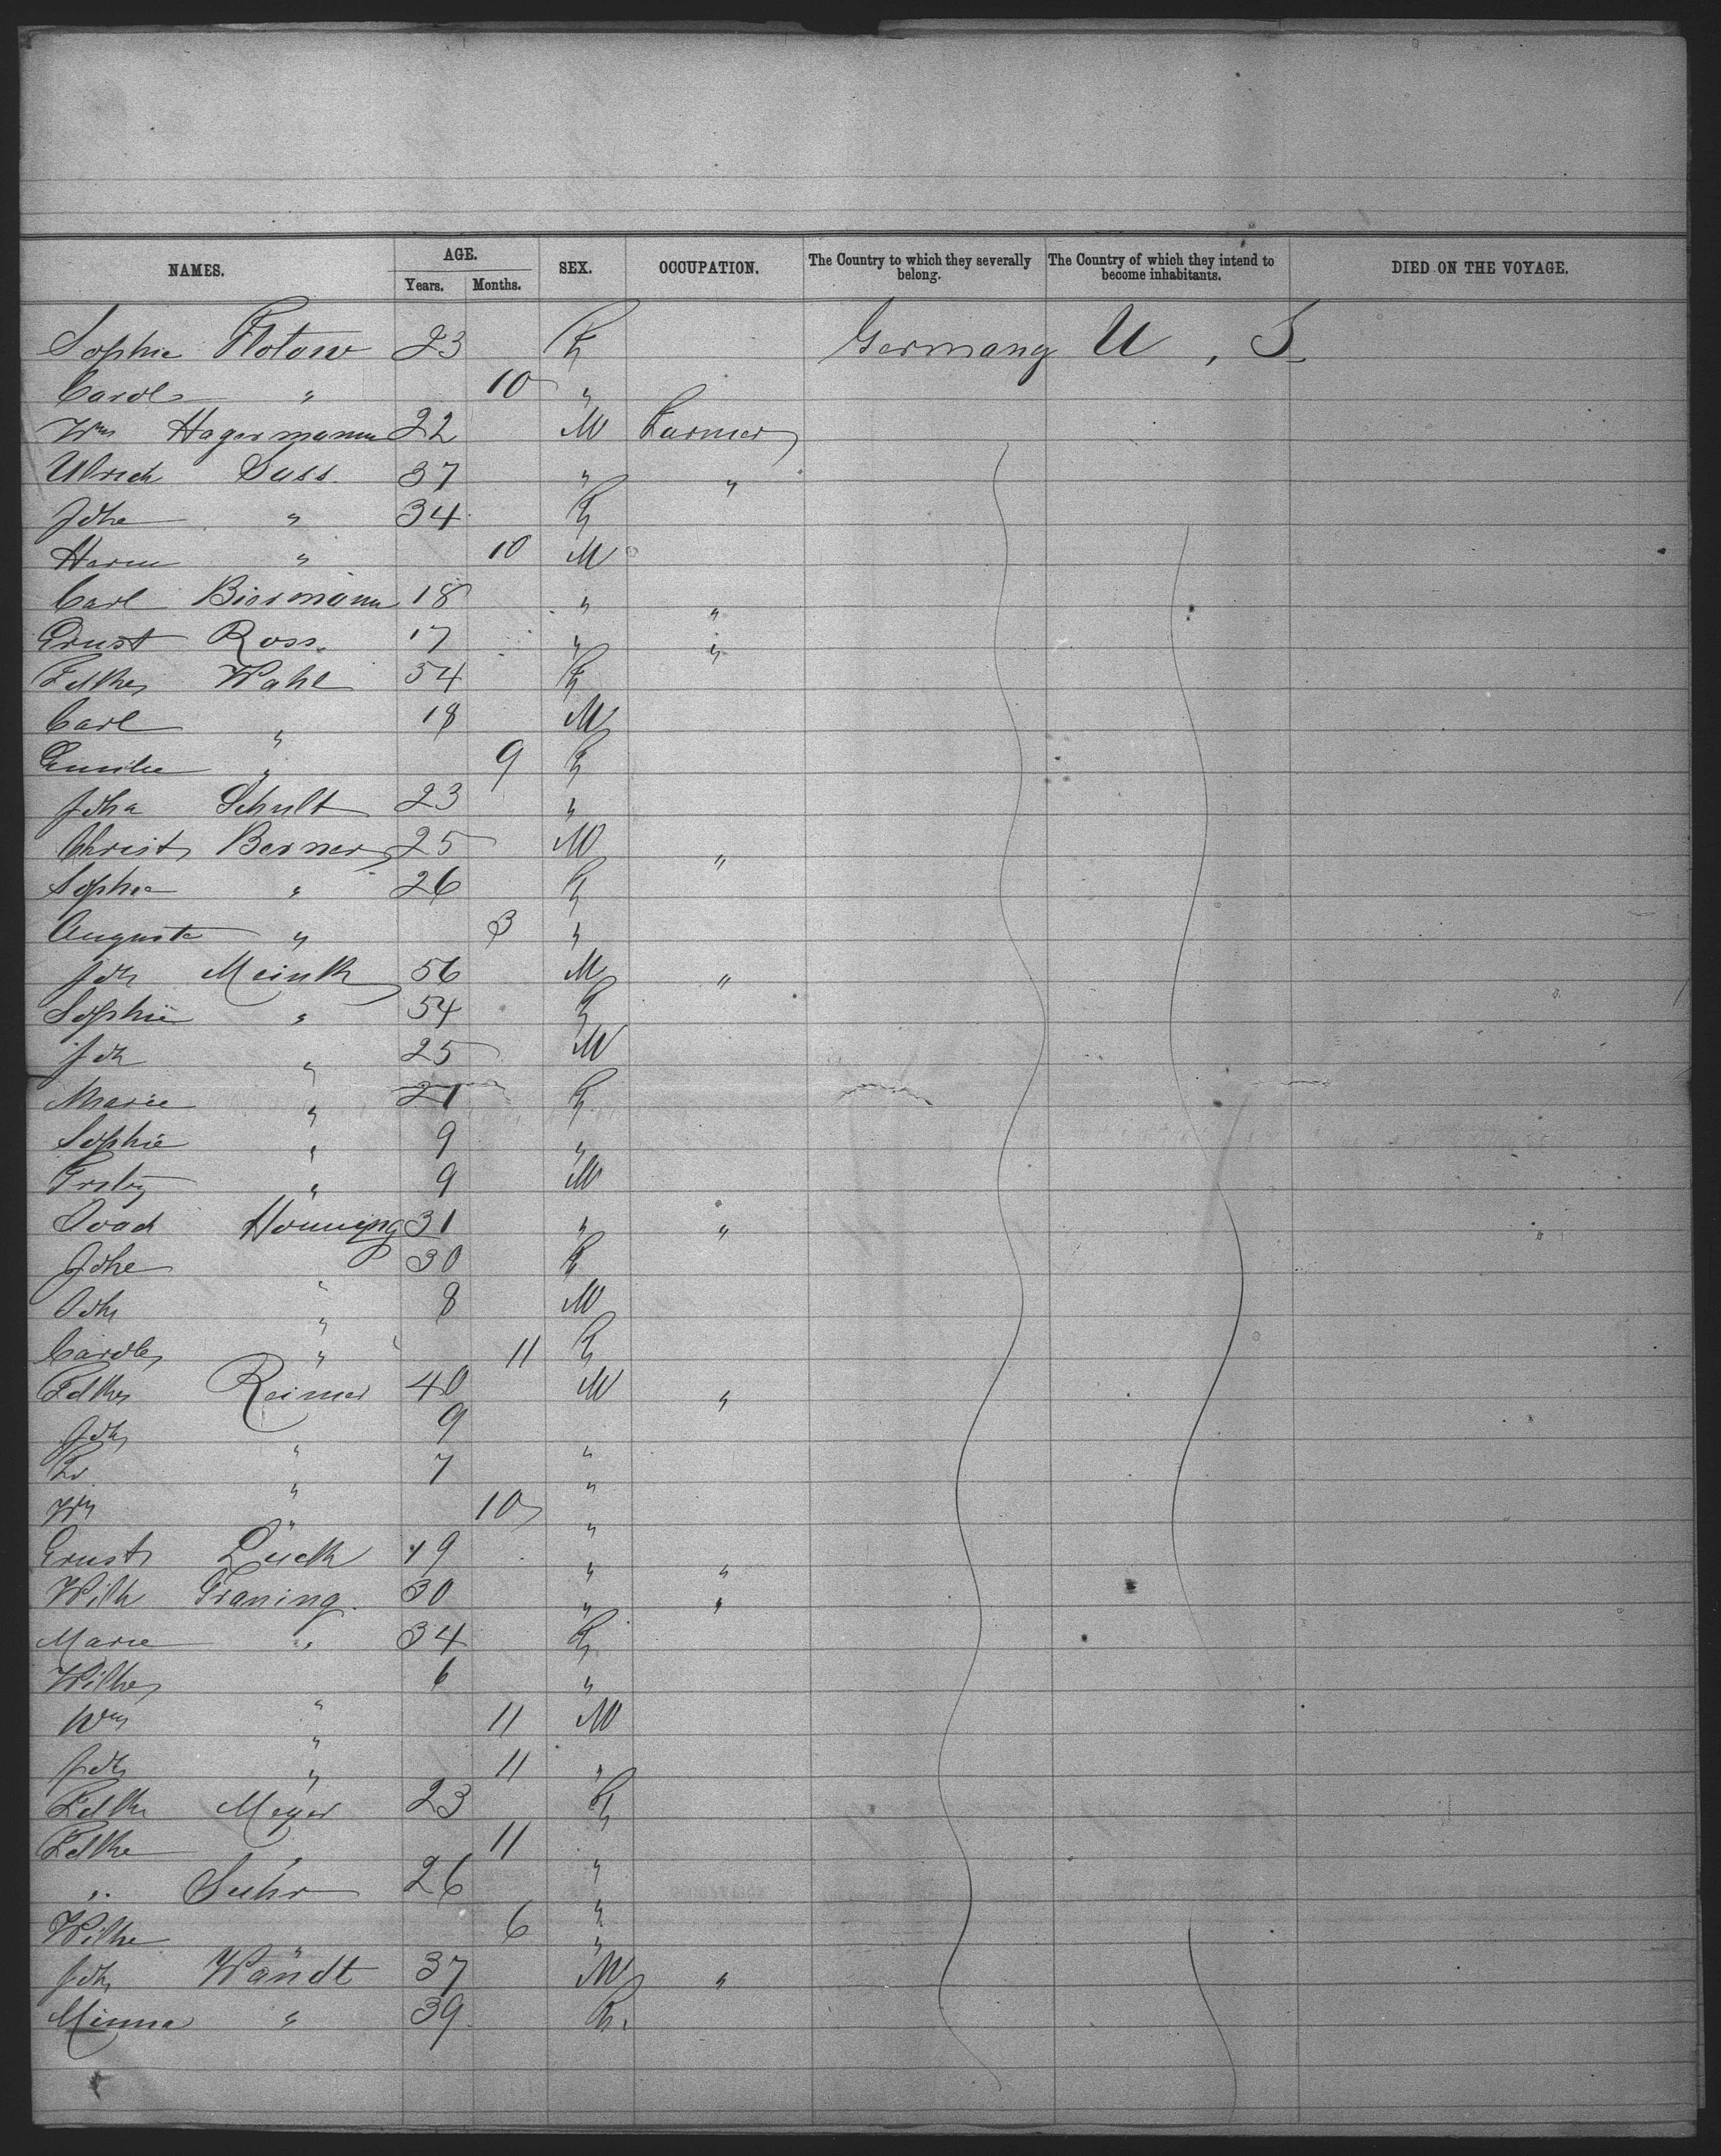 NAMES. AGE. Years. Months. SEX. OCCUPATION. The Country to which they severally belong. The Country of which they intend to become inhabitants. DIED ON THE VOYAGE.
Sophie Flotow 23 F Germany U. S
Carol " 10 "
Wm Hagermann 22 M Farmer
Ulrich Suss. 37 " "
Johe " 34 F
Herm " 10 M
Carl Biermann 18 " "
Ernst Ross. 17 " "
Fdke Wahl 54 F
Carl " 18 M
Emilie " 9 F
Joha Schult 23 "
Christ Berner 25 M "
Sophie " 26 F
Auguste " 3 "
Joh Meink 56 M "
Sophie " 54 F
Joh " 25 M
Marie " 21 F
Sophie " 9 "
" 9 M
Joach Henning 31 " "
Johe " 30 F
Joh " 8 M
Carole " 11 F
Fdke Reimer 40 M "
Joh " 9 "
Fr " 7 "
Wm " 10 "
Ernst Lück 19 " "
Wilh Graning. 30 " "
Marie " 34 F
Wilhe " 6 "
Wm " 11 M
Joh " 11 "
Fdke Meyer 23 F
Fdke " 11 "
" Suhr 26 "
Wilhe " 6 "
Joh Wandt 37 M "
Minna " 39 F.